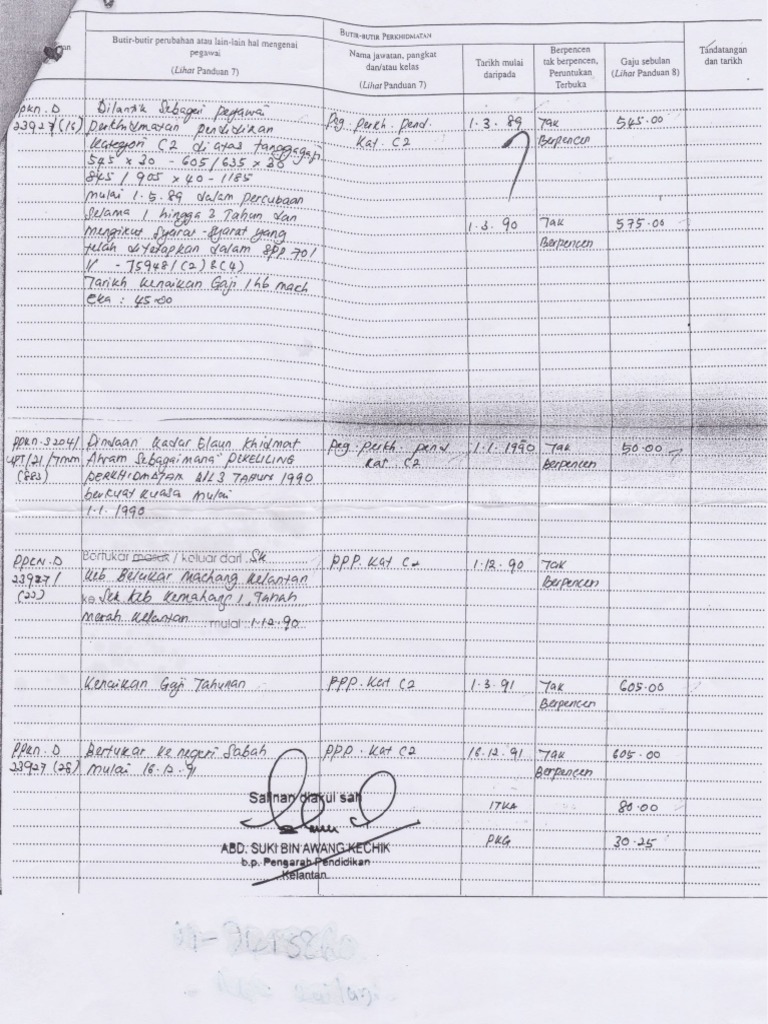 BUTIR-BUTIR PERKHIDMATAN
Butir-butir perubahan atau lain-lain hal mengenai
pegawai
(Lihat Panduan 7)
Nama jawatan, pangkat
dan/atau kelas
(Lihat Panduan 7)
Tarikh mulai
daripada
Berpencen
tak berpencen,
Peruntukan
Terbuka
Gaju sebulan
(Lihat Panduan 8)
Tandatangan
dan tarikh
PPKN. D
23927 (18)
Dilantik sebagai pegawai
Perkhidmatan Pendidikan
Kategori C2 di atas tanggagaji
545 x 30 - 605/635 x 30
845/905 x 40 - 1185
mulai 1.5.89 dalam percubaan
selama 1 hingga 3 Tahun dan
mengikut syarat-syarat yang
telah ditetapkan dalam SPP 701
- 75948/(2)&(4)
Tarikh Kenaikan Gaji 1hb mach
EKA : 45.00
Peg. Perkh. Pend.
Kat. C2
1.3.89
Tak
Berpencen
545.00
1.3.90
Tak
Berpencen
575.00
PPKN.S204/
/21/
(883)
Pindaan Kadar Elaun Khidmat
Awam sebagaimana PEKELILING
PERKHIDMATAN BIL 3 TAHUN 1990
berkuat kuasa mulai
1.1.1990
Peg. Perkh. Pend
Kat. C2
1.1.1990
Tak
Berpencen
50.00
PPKN.D
23927/
(23)
Bertukar masuk / keluar dari SK
Keb Belukar Machang Kelantan
ke Sek Keb Kemahang 1, Tanah
Merah Kelantan mulai 1.12.90
PPP. Kat C2
1.12.90
Tak
Berpencen
Kenaikan Gaji Tahunan
PPP. Kat C2
1.3.91
Tak
Berpencen
605.00
PPKN. D
23927 (28)
Bertukar ke negeri Sabah
mulai 16.12.91
PPP. Kat C2
16.12.91
Tak
Berpencen
605.00
ITKA
80.00
PKG
30.25
Salinan diakui sah
ABD. SUKI BIN AWANG KECHIK
b.p. Pengarah Pendidikan
Kelantan.